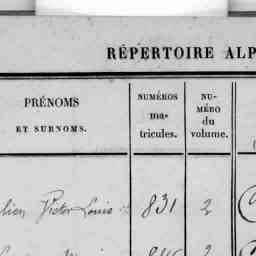 RÉPERTOIRE ALP
PRÉNOMS
ET SURNOMS.
NUMÉROS
ma-
tricules.
NU-
MÉRO
du
volume.
lien Victor Louis 831 2